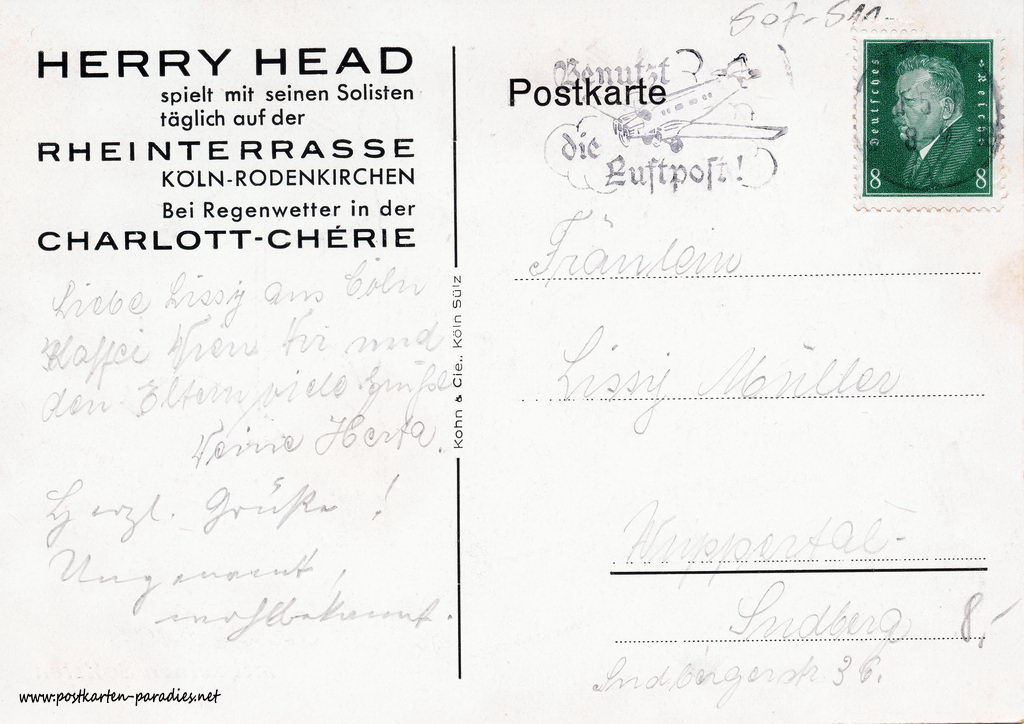 HERRY HEAD
spielt mit seinen Solisten
täglich auf der
RHEINTERRASSE
KÖLN-RODENKIRCHEN
Bei Regenwetter in der
CHARLOTT-CHÉRIE
Liebe Lissy aus Cöln
Kaffee Wien Dir und
den Eltern viele Grüße
Deine Herta.
Herzl. Grüße!
Ungenannt,
wohlbekannt.
Kohn & Cie., Köln Sülz
507-511.
Postkarte
Benutzt
die
Luftpost!
Deutsches Reich
8 8
Fräulein
Lissy Müller
Wuppertal-
Sudberg
Sudbergerstr 36.
8,-
www.postkarten-paradies.net